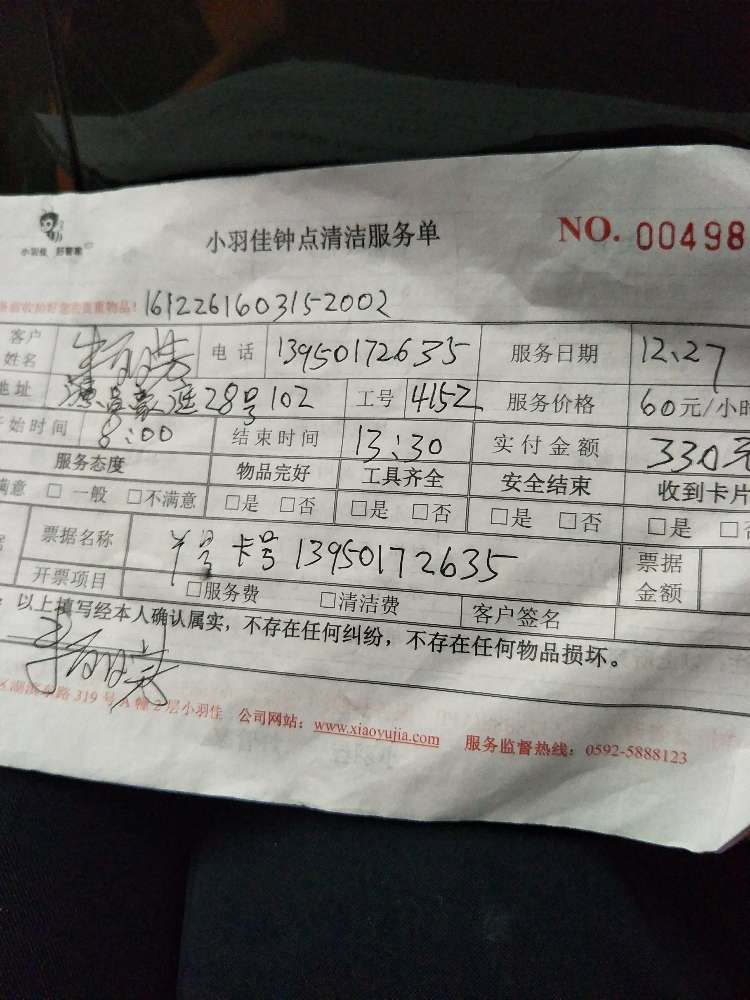 小羽佳 好管家
小羽佳钟点清洁服务单
NO. 00498
1612261603152002
客户姓名 电话 13950172635 服务日期 12.27
地址 28号102 工号 4152 服务价格 60元/小时
开始时间 8:00 结束时间 13:30 实付金额 330元
服务态度 物品完好 工具齐全 安全结束 收到卡片
满意 □ 一般 □不满意 □是 □否 □是 □否 □是 □否 □是 □否
票据名称 卡号 13950172635 票据金额
开票项目 □服务费 □清洁费 客户签名
以上填写经本人确认属实，不存在任何纠纷，不存在任何物品损坏。
区湖滨东路 319 号 A 幢 2 层小羽佳 公司网站：www.xiaoyujia.com 服务监督热线：0592-5888123